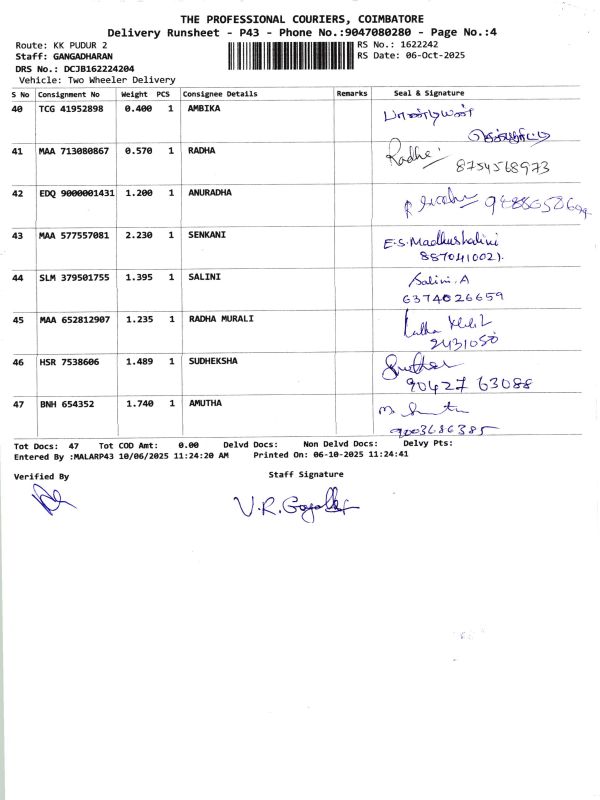 THE PROFESSIONAL COURIERS, COIMBATORE
Delivery Runsheet - P43 - Phone No.:9047080280 - Page No.:4
Route: KK PUDUR 2 RS No.: 1622242
Staff: GANGADHARAN RS Date: 06-Oct-2025
DRS No.: DCJB162224204
Vehicle: Two Wheeler Delivery
S No Consignment No Weight PCS Consignee Details Remarks Seal & Signature
40 TCG 41952898 0.400 1 AMBIKA
41 MAA 713080867 0.570 1 RADHA Radha
8754568973
42 EDQ 9000001431 1.200 1 ANURADHA
43 MAA 577557081 2.230 1 SENKANI E.S.Madhushalini
8870410021.
44 SLM 379501755 1.395 1 SALINI Salini.A
6374026659
45 MAA 652812907 1.235 1 RADHA MURALI
2431050
46 HSR 7538606 1.489 1 SUDHEKSHA
90427 63088
47 BNH 654352 1.740 1 AMUTHA
9003686385
Tot Docs: 47 Tot COD Amt: 0.00 Delvd Docs: Non Delvd Docs: Delvy Pts:
Entered By :MALARP43 10/06/2025 11:24:20 AM Printed On: 06-10-2025 11:24:41
Verified By Staff Signature
V.R.